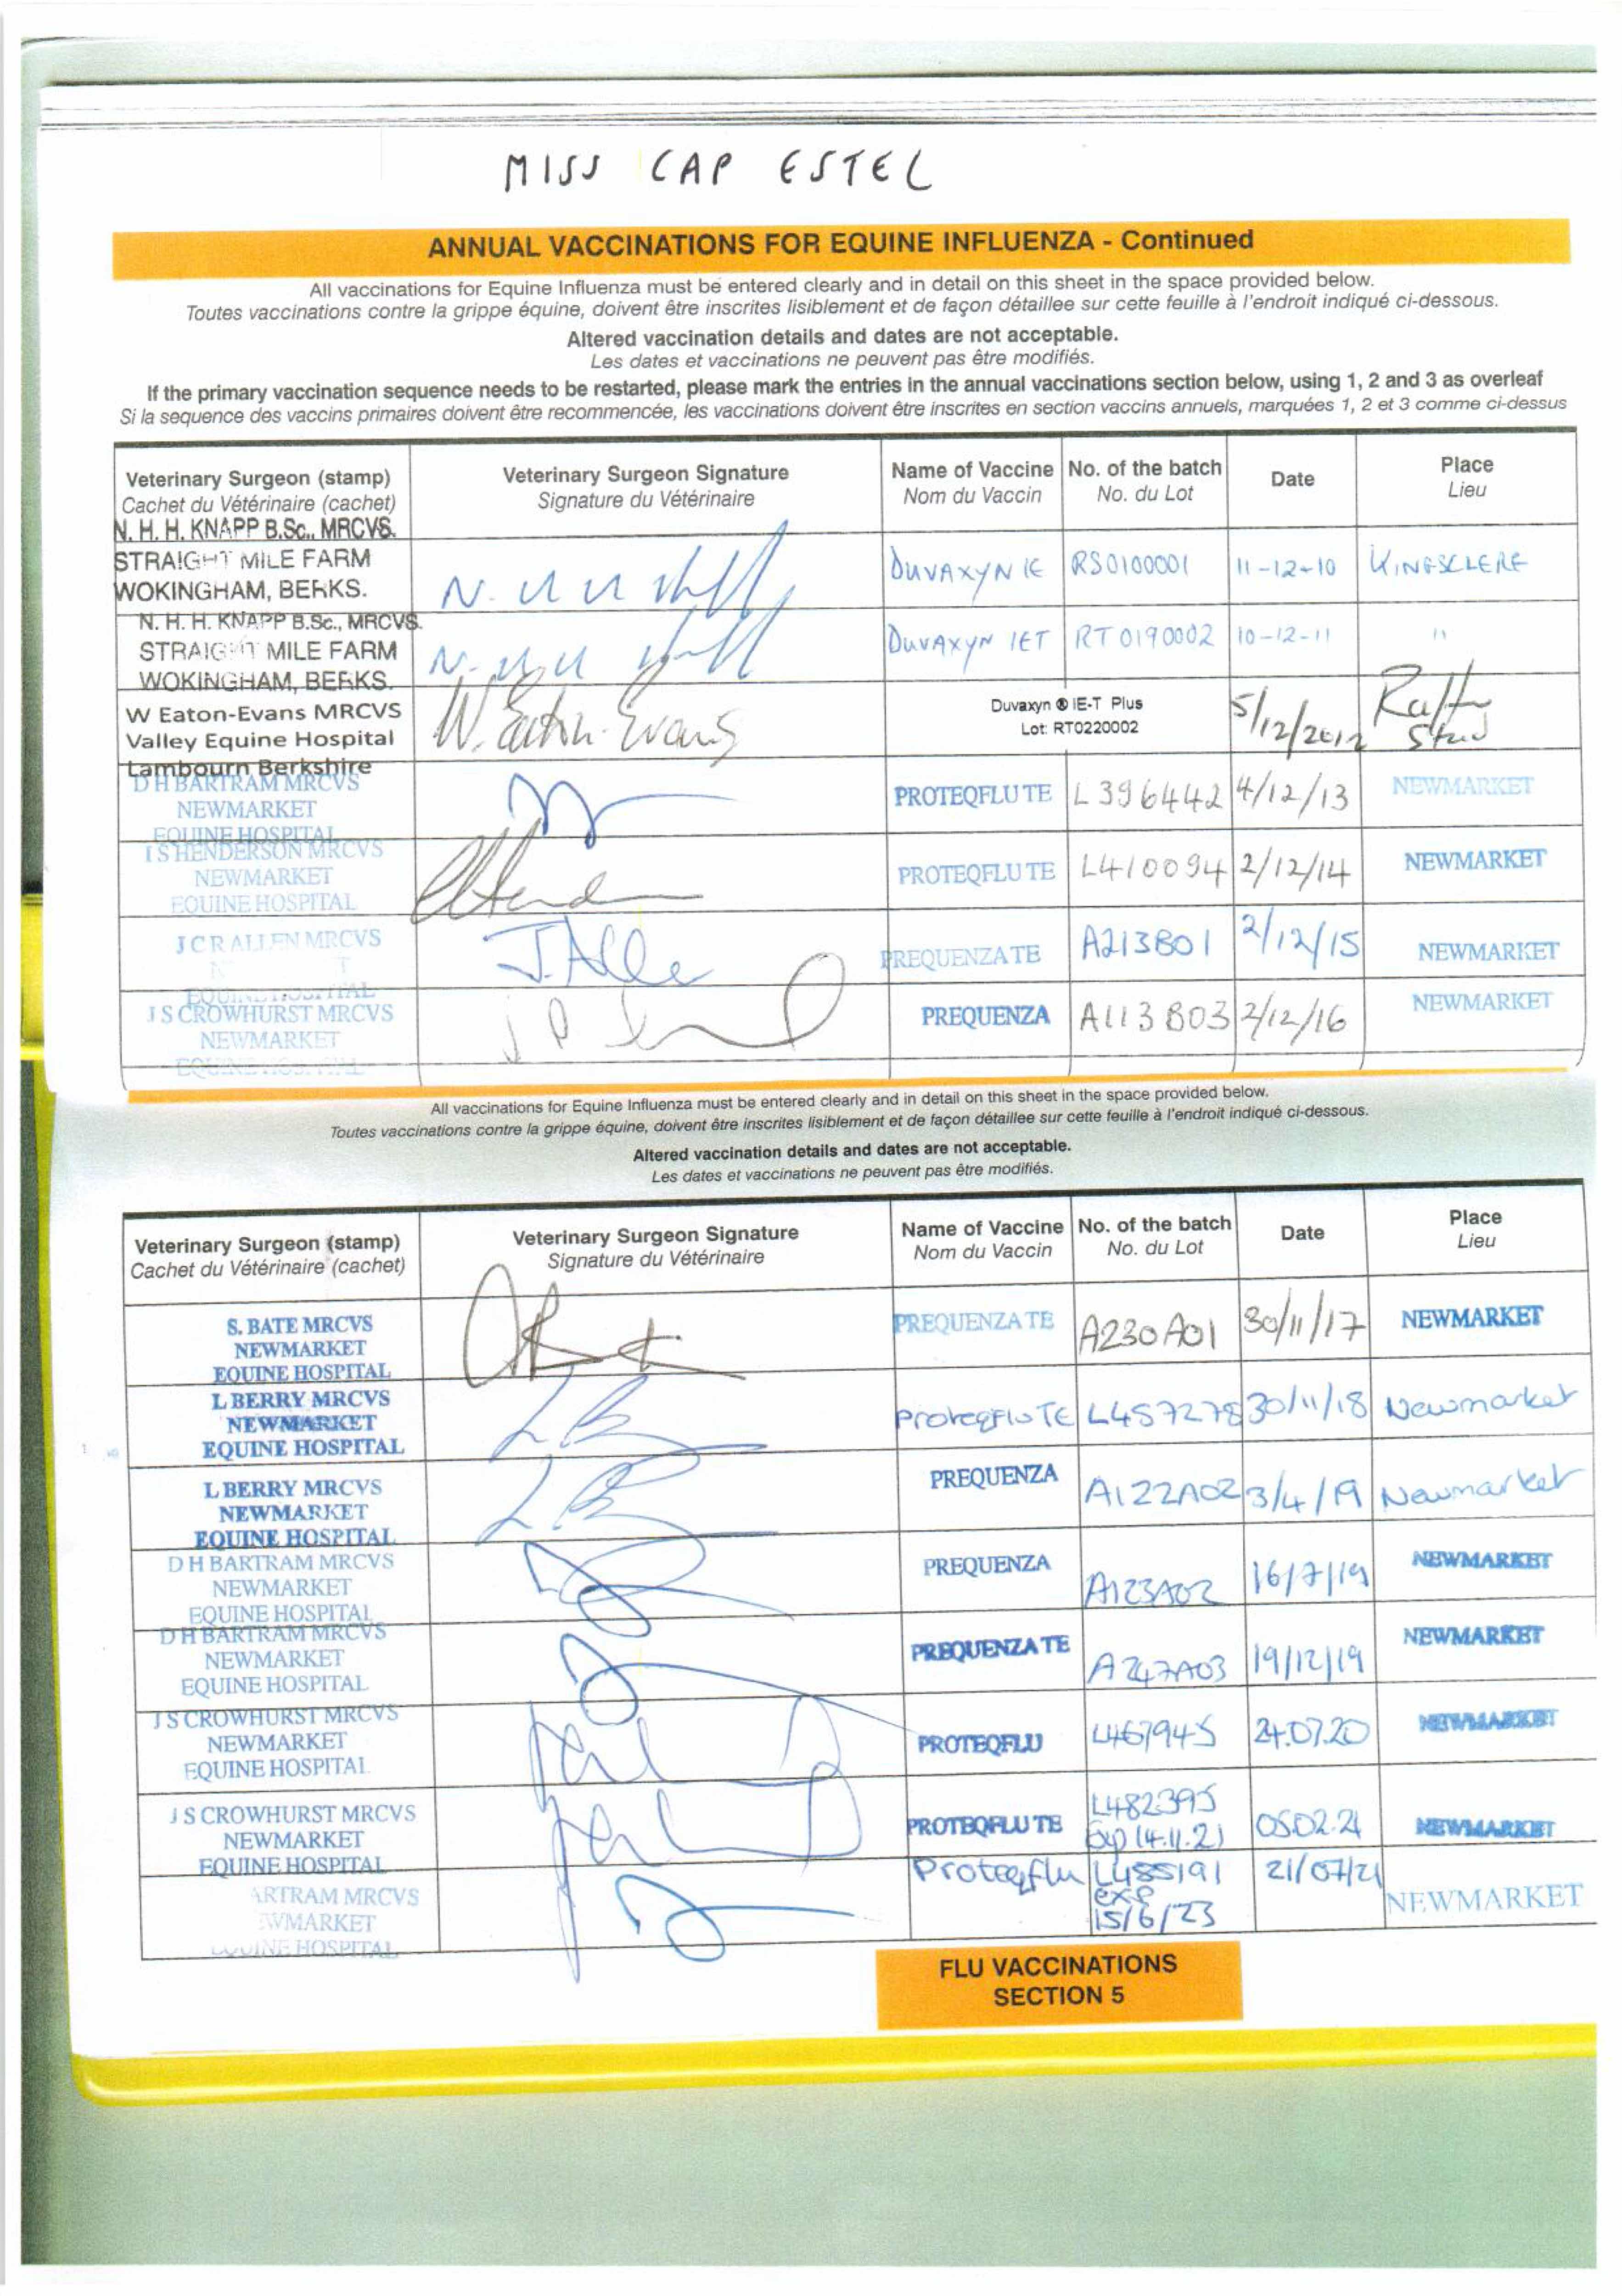 MISS CAP ESTEL
ANNUAL VACCINATIONS FOR EQUINE INFLUENZA - Continued
All vaccinations for Equine Influenza must be entered clearly and in detail on this sheet in the space provided below.
Toutes vaccinations contre la grippe équine, doivent être inscrites lisiblement et de façon détaillee sur cette feuille à l'endroit indiqué ci-dessous.
Altered vaccination details and dates are not acceptable.
Les dates et vaccinations ne peuvent pas être modifiés.
If the primary vaccination sequence needs to be restarted, please mark the entries in the annual vaccinations section below, using 1, 2 and 3 as overleaf
Si la sequence des vaccins primaires doivent être recommencée, les vaccinations doivent être inscrites en section vaccins annuels, marquées 1, 2 et 3 comme ci-dessus
Veterinary Surgeon (stamp) Veterinary Surgeon Signature Name of Vaccine No. of the batch Date Place
Cachet du Vétérinaire (cachet) Signature du Vétérinaire Nom du Vaccin No. du Lot Lieu
N. H. H. KNAPP B.Sc., MRCVS.
STRAIGHT MILE FARM DUVAXYN IE RS0100001 11-12-10 KINGSCLERE
WOKINGHAM, BERKS.
N. H. H. KNAPP B.Sc., MRCVS.
STRAIGHT MILE FARM DUVAXYN IET RT0190002 10-12-11 "
WOKINGHAM, BERKS.
W Eaton-Evans MRCVS W. Eaton-Evans Duvaxyn ® IE-T Plus 5/12/2012
Valley Equine Hospital Lot: RT0220002 Stud
Lambourn Berkshire
D H BARTRAM MRCVS
NEWMARKET PROTEQFLU TE L396442 4/12/13 NEWMARKET
EQUINE HOSPITAL
I S HENDERSON MRCVS
NEWMARKET PROTEQFLU TE L410094 2/12/14 NEWMARKET
EQUINE HOSPITAL
J C R ALLEN MRCVS J. Alle PREQUENZA TE A213B01 2/12/15 NEWMARKET
EQUINE HOSPITAL
J S CROWHURST MRCVS PREQUENZA A113B03 2/12/16 NEWMARKET
NEWMARKET
EQUINE HOSPITAL
All vaccinations for Equine Influenza must be entered clearly and in detail on this sheet in the space provided below.
Toutes vaccinations contre la grippe équine, doivent être inscrites lisiblement et de façon détaillee sur cette feuille à l'endroit indiqué ci-dessous.
Altered vaccination details and dates are not acceptable.
Les dates et vaccinations ne peuvent pas être modifiés.
Veterinary Surgeon (stamp) Veterinary Surgeon Signature Name of Vaccine No. of the batch Date Place
Cachet du Vétérinaire (cachet) Signature du Vétérinaire Nom du Vaccin No. du Lot Lieu
S. BATE MRCVS PREQUENZA TE A230A01 30/11/17 NEWMARKET
NEWMARKET
EQUINE HOSPITAL
L BERRY MRCVS
NEWMARKET ProteqFlu TE L457278 30/11/18 Newmarket
EQUINE HOSPITAL
L BERRY MRCVS PREQUENZA A122A02 3/4/19 Newmarket
NEWMARKET
EQUINE HOSPITAL
D H BARTRAM MRCVS PREQUENZA A123A02 16/7/19 NEWMARKET
NEWMARKET
EQUINE HOSPITAL
D H BARTRAM MRCVS PREQUENZA TE A247A03 19/12/19 NEWMARKET
NEWMARKET
EQUINE HOSPITAL
J S CROWHURST MRCVS
NEWMARKET PROTEQFLU L467945 24.07.20 NEWMARKET
EQUINE HOSPITAL
J S CROWHURST MRCVS L482395
NEWMARKET PROTEQFLU TE Exp 14.11.21 05.02.21 NEWMARKET
EQUINE HOSPITAL Proteqflu L485191 21/07/21
ARTRAM MRCVS exp NEWMARKET
WMARKET 15/6/23
EQUINE HOSPITAL
FLU VACCINATIONS
SECTION 5